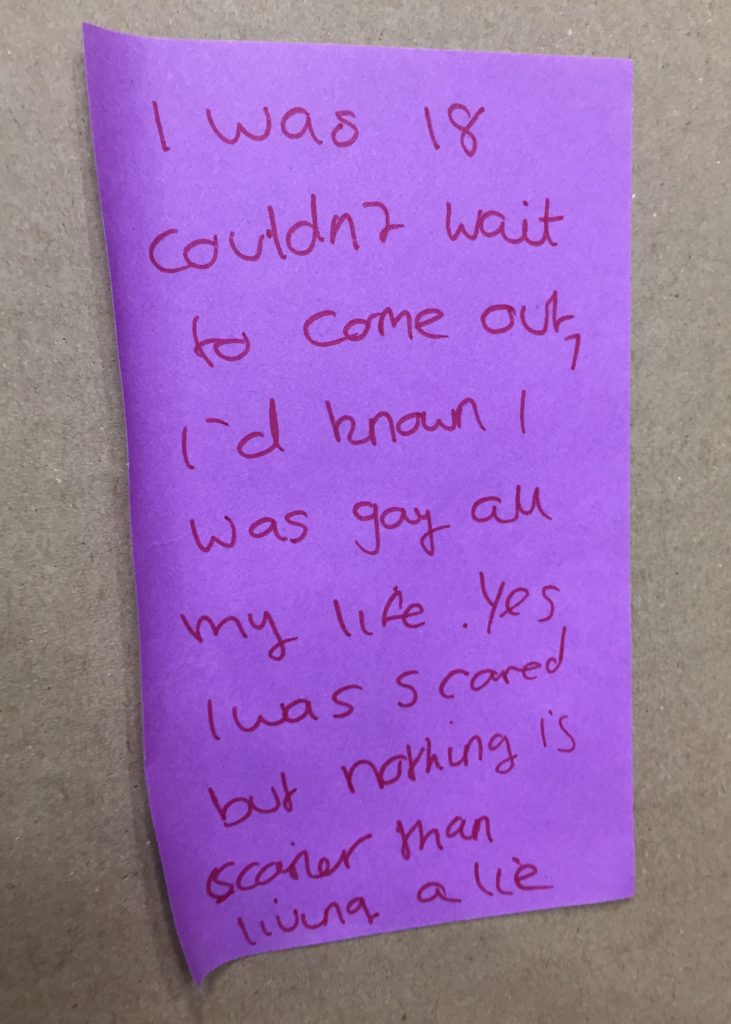 I was 18
couldn't wait
to come out,
I'd known I
was gay all
my life. Yes
I was scared
but nothing is
scarier than
living a lie